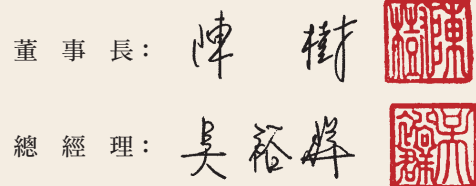 董事長：陳樹 陳樹
總經理：吳裕群 吳裕群